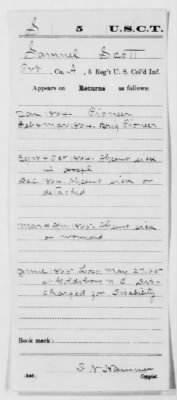 S 5 U.S.C.T.
Samuel Scott
Pvt, Co. A, 5 Reg't U. S. Col'd Inf.
Appears on Returns as follows:
Jan 1864. Pioneer
Feb & Mar 1864. Brig Pioneer
Sept & Oct 1864. Absent sick
in hospl
Dec 1864. Absent sick or
detached
Mar & Apr 1865. Absent sick
or wounded
June 1865. Loss, May 27, 65
at Goldsboro N C. Dis-
charged for Disability
Book mark:
Copyist.